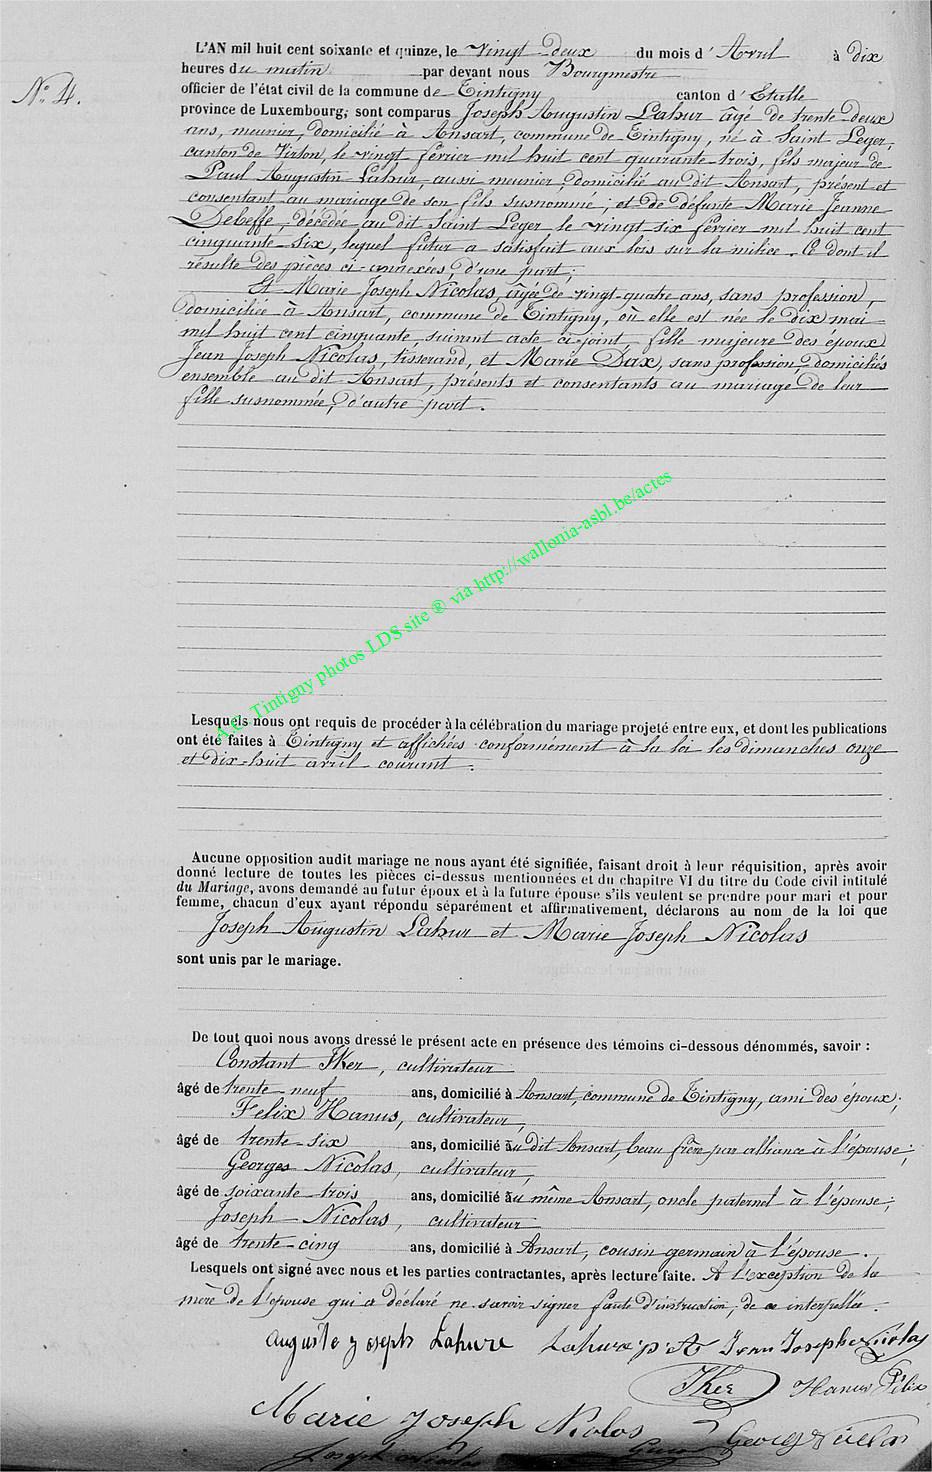 L'AN mil huit cent soixante et quinze, le vingt-deux du mois d' Avril à dix
heures du matin par devant nous Bourgmestre
N° 4.
officier de l'état civil de la commune de Tintigny canton d' Etalle
province de Luxembourg; sont comparus Joseph Augustin Lahur âgé de trente-deux
ans, meunier, domicilié à Ansart, commune de Tintigny, né à Saint Leger,
canton de Virton, le vingt février mil huit cent quarante trois, fils majeur de
Paul Augustin Lahur, aussi meunier, domicilié au dit Ansart, présent et
consentant au mariage de son fils susnommé; et de défunte Marie Jeanne
Debeffe, décédée au dit Saint Leger le vingt six février mil huit cent
cinquante-six, lequel futur a satisfait aux lois sur la milice. Ce dont il
résulte des pièces ci-annexées, d'une part;
Et Marie Joseph Nicolas, âgée de vingt-quatre ans, sans profession,
domiciliée à Ansart, commune de Tintigny, où elle est née le dix mai
mil huit cent cinquante, suivant acte ci-joint, fille majeure des époux
Jean Joseph Nicolas, tisserand, et Marie Dax, sans profession, domiciliés
ensemble au dit Ansart, présents et consentants au mariage de leur
fille susnommée, d'autre part.
A.C. Tintigny photos LDS site ® via http://wallonia-asbl.be/actes
Lesquels nous ont requis de procéder à la célébration du mariage projeté entre eux, et dont les publications
ont été faites à Tintigny et affichées conformément à la loi les dimanches onze
et dix-huit avril courant.
Aucune opposition audit mariage ne nous ayant été signifiée, faisant droit à leur réquisition, après avoir
donné lecture de toutes les pièces ci-dessus mentionnées et du chapitre VI du titre du Code civil intitulé
du Mariage, avons demandé au futur époux et à la future épouse s'ils veulent se prendre pour mari et pour
femme, chacun d'eux ayant répondu séparément et affirmativement, déclarons au nom de la loi que
Joseph Augustin Lahur et Marie Joseph Nicolas
sont unis par le mariage.
De tout quoi nous avons dressé le présent acte en présence des témoins ci-dessous dénommés, savoir :
Constant Iker, cultivateur
âgé de trente-neuf ans, domicilié à Ansart, commune de Tintigny, ami des époux;
Felix Hanus, cultivateur,
âgé de trente-six ans, domicilié au dit Ansart, beau frère par alliance à l'épouse;
Georges Nicolas, cultivateur,
âgé de soixante-trois ans, domicilié au même Ansart, oncle paternel à l'épouse;
Joseph Nicolas, cultivateur
âgé de trente-cinq ans, domicilié à Ansart, cousin germain à l'épouse.
Lesquels ont signé avec nous et les parties contractantes, après lecture faite. A l'exception de la
mère de l'épouse qui a déclaré ne savoir signer faute d'instruction, de ce interpellée.
Auguste Joseph Lahure Lahure p A Jean Joseph Nicolas
Iker Hanus Félix
Marie Joseph Nicolas Georg Nicolas
Joseph Nicolas